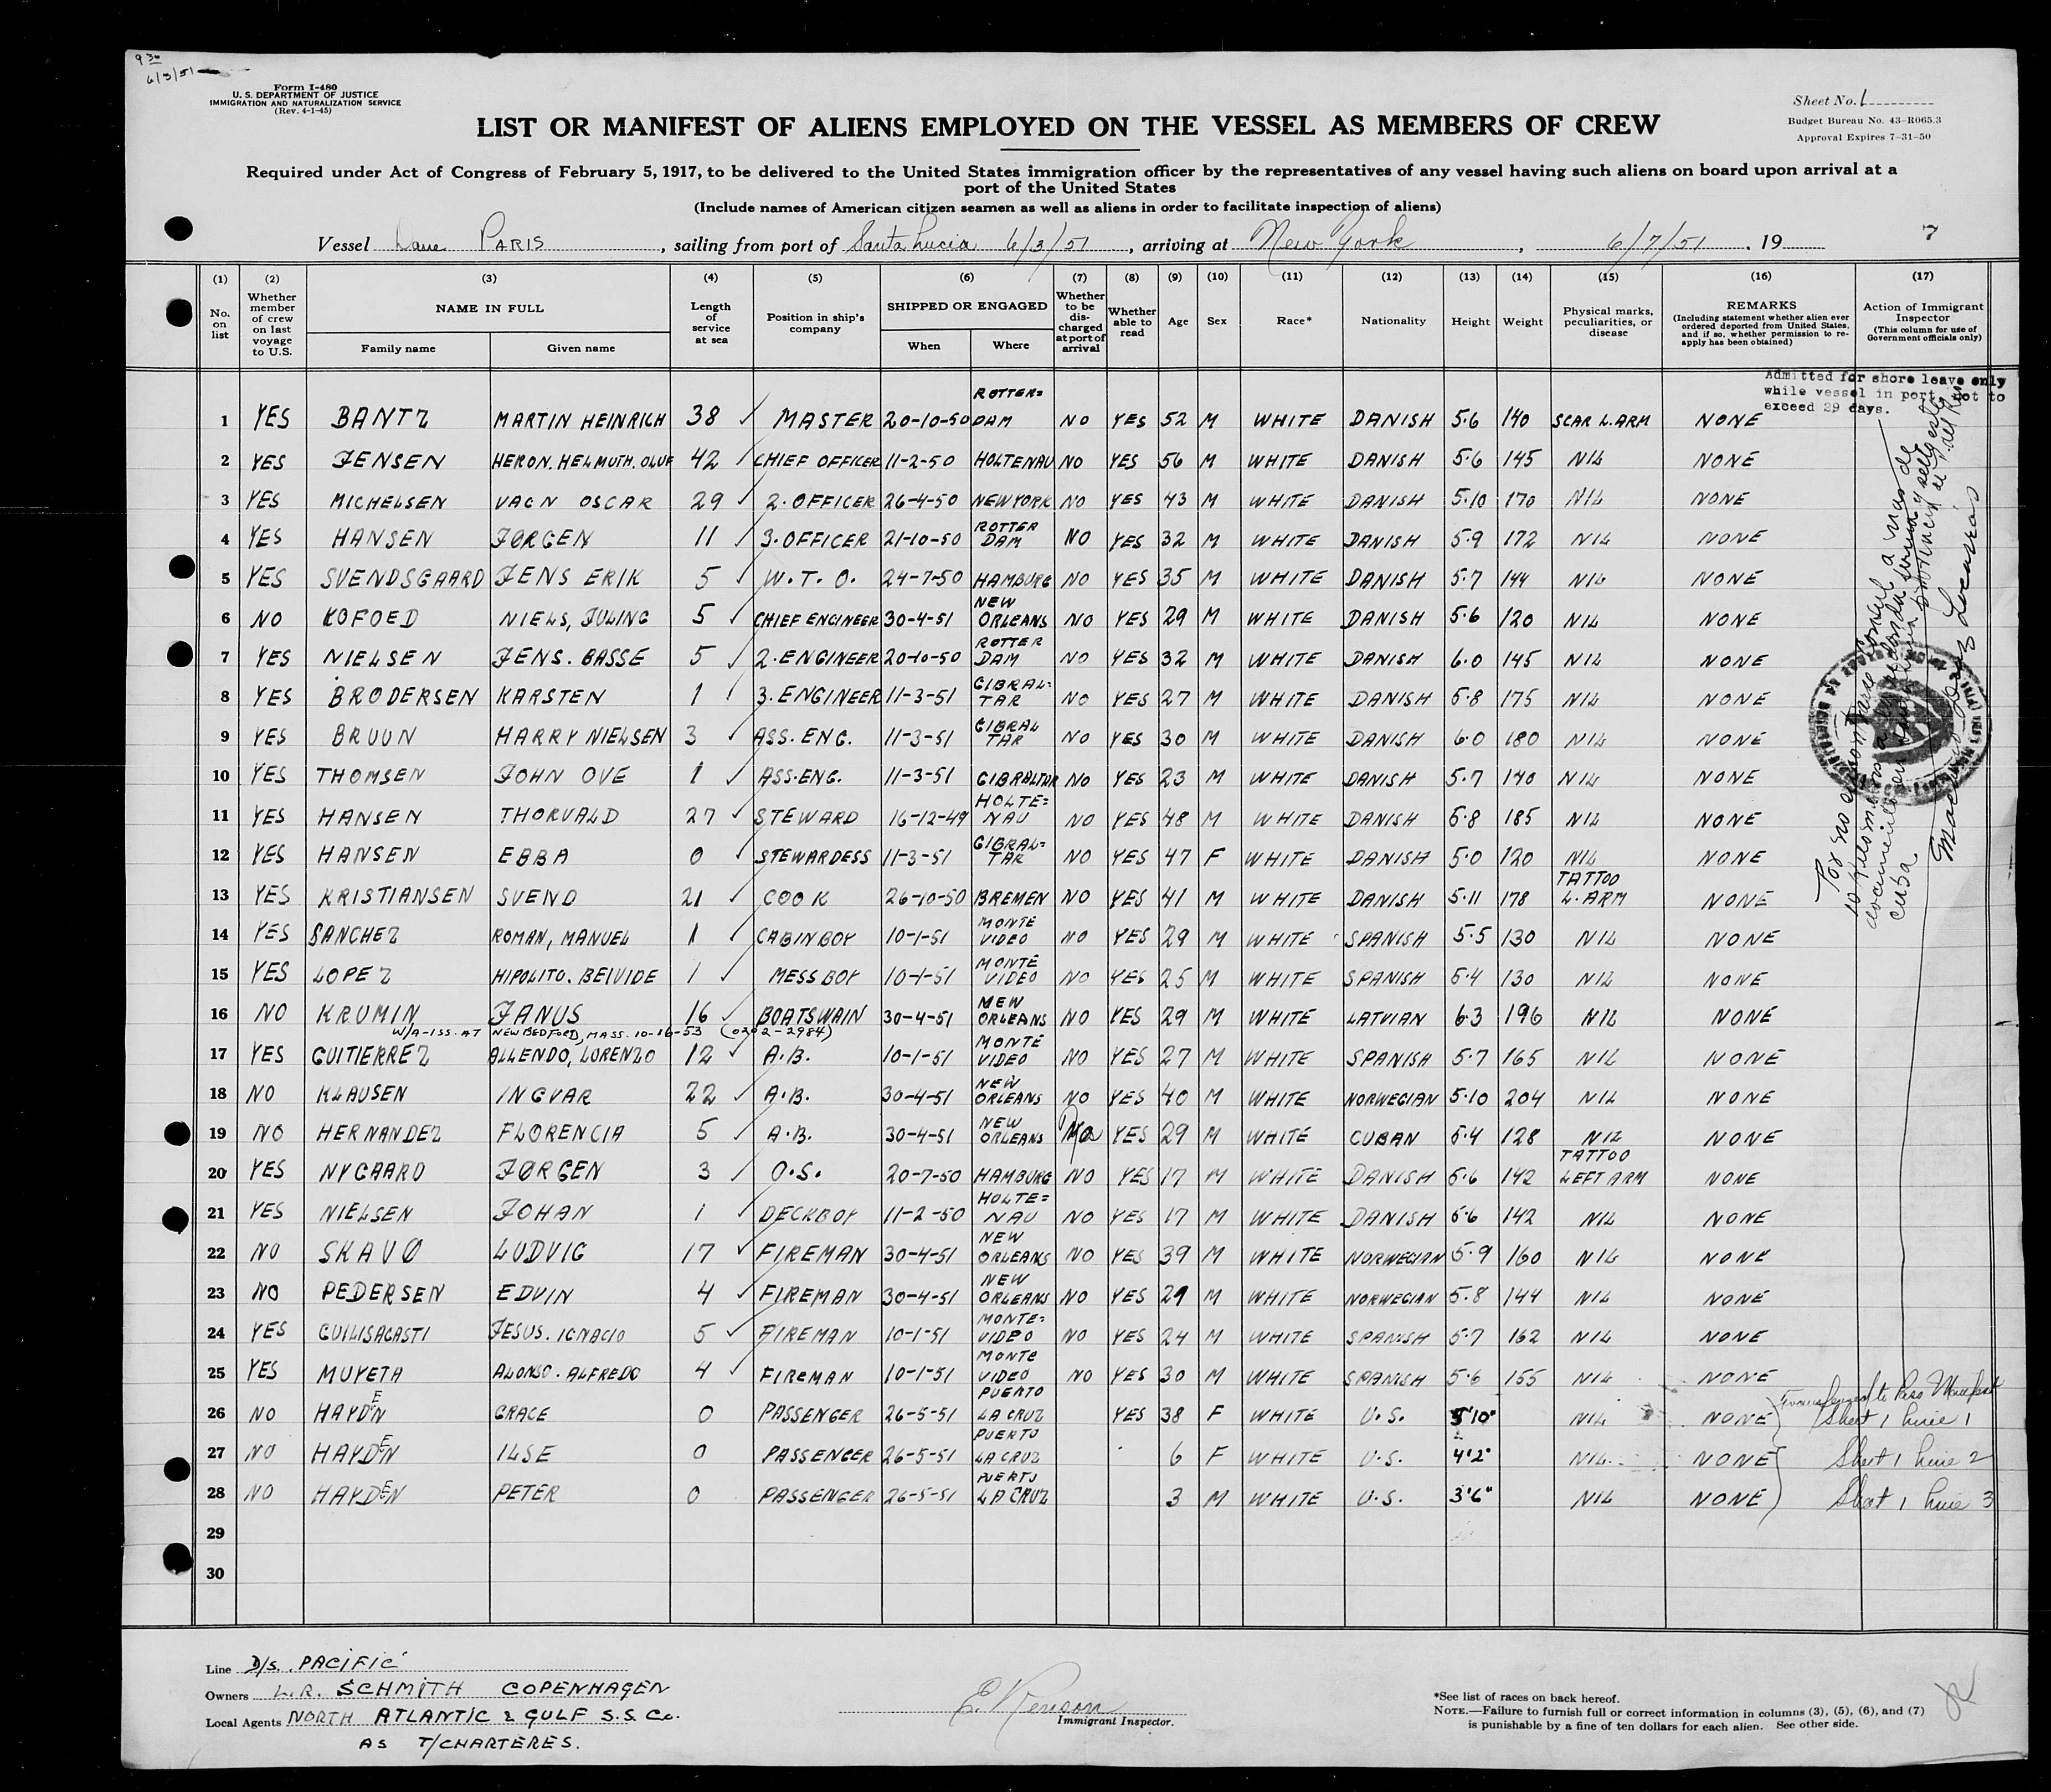 9 30
6/3/51
Form I-480
U. S. DEPARTMENT OF JUSTICE
IMMIGRATION AND NATURALIZATION SERVICE
(Rev. 4-1-45)
Sheet No. 1
Budget Bureau No. 43-R065.3
Approval Expires 7-31-50
LIST OR MANIFEST OF ALIENS EMPLOYED ON THE VESSEL AS MEMBERS OF CREW
Required under Act of Congress of February 5, 1917, to be delivered to the United States immigration officer by the representatives of any vessel having such aliens on board upon arrival at a
port of the United States
(Include names of American citizen seamen as well as aliens in order to facilitate inspection of aliens)
Vessel PARIS, sailing from port of Santa Lucia 6/3/51, arriving at New York, 6/7/51, 19 7
(1) (2) (3) (4) (5) (6) (7) (8) (9) (10) (11) (12) (13) (14) (15) (16) (17)
No. on list
Whether member of crew on last voyage to U.S.
NAME IN FULL
Family name
Given name
Length of service at sea
Position in ship's company
SHIPPED OR ENGAGED
When
Where
Whether to be discharged at port of arrival
Whether able to read
Age
Sex
Race*
Nationality
Height
Weight
Physical marks, peculiarities, or disease
REMARKS
(Including statement whether alien ever ordered deported from United States, and if so, whether permission to re-apply has been obtained)
Action of Immigrant Inspector
(This column for use of Government officials only)
Admitted for shore leave only
while vessel in port not to
exceed 29 days.
1 YES BANTZ MARTIN HEINRICH 38 MASTER 20-10-50 ROTTER=DAM NO YES 52 M WHITE DANISH 5.6 140 SCAR L.ARM NONE
2 YES JENSEN HERON. HELMUTH. OLUF 42 CHIEF OFFICER 11-2-50 HOLTENAU NO YES 56 M WHITE DANISH 5.6 145 NIL NONE
3 YES MICHELSEN VAGN OSCAR 29 2. OFFICER 26-4-50 NEWYORK NO YES 43 M WHITE DANISH 5.10 170 NIL NONE
4 YES HANSEN JØRGEN 11 3. OFFICER 21-10-50 ROTTER DAM NO YES 32 M WHITE DANISH 5.9 172 NIL NONE
5 YES SVENDSGAARD JENS ERIK 5 W. T. O. 24-7-50 HAMBURG NO YES 35 M WHITE DANISH 5.7 144 NIL NONE
6 NO KOFOED NIELS, JULING 5 CHIEF ENGINEER 30-4-51 NEW ORLEANS NO YES 29 M WHITE DANISH 5.6 120 NIL NONE
7 YES NIELSEN JENS. BASSE 5 2. ENGINEER 20-10-50 ROTTER DAM NO YES 32 M WHITE DANISH 6.0 145 NIL NONE
8 YES BRODERSEN KARSTEN 1 3. ENGINEER 11-3-51 GIBRAL=TAR NO YES 27 M WHITE DANISH 5.8 175 NIL NONE
9 YES BRUUN HARRY NIELSEN 3 ASS. ENG. 11-3-51 GIBRAL TAR NO YES 30 M WHITE DANISH 6.0 180 NIL NONE
10 YES THOMSEN JOHN OVE 1 ASS.ENG. 11-3-51 GIBRALTAR NO YES 23 M WHITE DANISH 5.7 140 NIL NONE
11 YES HANSEN THORVALD 27 STEWARD 16-12-49 HOLTE=NAU NO YES 48 M WHITE DANISH 5.8 185 NIL NONE
12 YES HANSEN EBBA 0 STEWARDESS 11-3-51 GIBRAL=TAR NO YES 47 F WHITE DANISH 5.0 120 NIL NONE
13 YES KRISTIANSEN SVEND 21 COOK 26-10-50 BREMEN NO YES 41 M WHITE DANISH 5.11 178 TATTOO L. ARM NONE
14 YES SANCHEZ ROMAN, MANUEL 1 CABINBOY 10-1-51 MONTE VIDEO NO YES 29 M WHITE SPANISH 5.5 130 NIL NONE
15 YES LOPEZ HIPOLITO. BEIVIDE 1 MESSBOY 10-1-51 MONTE VIDEO NO YES 25 M WHITE SPANISH 5.4 130 NIL NONE
16 NO KRUMIN JANUS 16 BOATSWAIN 30-4-51 NEW ORLEANS NO YES 29 M WHITE LATVIAN 6.3 196 NIL NONE
W/A-ISS. AT NEW BEDFORD, MASS. 10-16-53 (0202-2984)
17 YES GUITIERREZ ALLENDO, LORENZO 12 A.B. 10-1-51 MONTE VIDEO NO YES 27 M WHITE SPANISH 5.7 165 NIL NONE
18 NO KLAUSEN INGVAR 22 A.B. 30-4-51 NEW ORLEANS NO YES 40 M WHITE NORWEGIAN 5.10 204 NIL NONE
19 NO HERNANDEZ FLORENCIA 5 A.B. 30-4-51 NEW ORLEANS No YES 29 M WHITE CUBAN 5.4 128 NIL NONE
20 YES NYGAARD JØRGEN 3 O.S. 20-7-50 HAMBURG NO YES 17 M WHITE DANISH 5.6 142 TATTOO LEFT ARM NONE
21 YES NIELSEN JOHAN 1 DECKBOY 11-2-50 HOLTE=NAU NO YES 17 M WHITE DANISH 5.6 142 NIL NONE
22 NO SKAVØ LUDVIG 17 FIREMAN 30-4-51 NEW ORLEANS NO YES 39 M WHITE NORWEGIAN 5.9 160 NIL NONE
23 NO PEDERSEN EDVIN 4 FIREMAN 30-4-51 NEW ORLEANS NO YES 29 M WHITE NORWEGIAN 5.8 144 NIL NONE
24 YES GUILISAGASTI JESUS. IGNACIO 5 FIREMAN 10-1-51 MONTE=VIDEO NO YES 24 M WHITE SPANISH 5.7 162 NIL NONE
25 YES MUYETA ALONSO. ALFREDO 4 FIREMAN 10-1-51 MONTE VIDEO NO YES 30 M WHITE SPANISH 5.6 155 NIL NONE
26 NO HAYDEN GRACE 0 PASSENGER 26-5-51 PUERTO LA CRUZ YES 38 F WHITE U.S. 5'10" NIL NONE Transferred to Pass Manifest Sheet 1 Line 1
27 NO HAYDEN ILSE 0 PASSENGER 26-5-51 PUERTO LA CRUZ 6 F WHITE U.S. 4'2" NIL. NONE Sheet 1 Line 2
28 NO HAYDEN PETER 0 PASSENGER 26-5-51 PUERTO LA CRUZ 3 M WHITE U.S. 3'6" NIL NONE Sheet 1 Line 3
29
30
Line D/S. PACIFIC
Owners L.R. SCHMITH COPENHAGEN
Local Agents NORTH ATLANTIC & GULF S.S. Co.
AS T/CHARTERES.
Immigrant Inspector.
*See list of races on back hereof.
NOTE.—Failure to furnish full or correct information in columns (3), (5), (6), and (7)
is punishable by a fine of ten dollars for each alien. See other side.